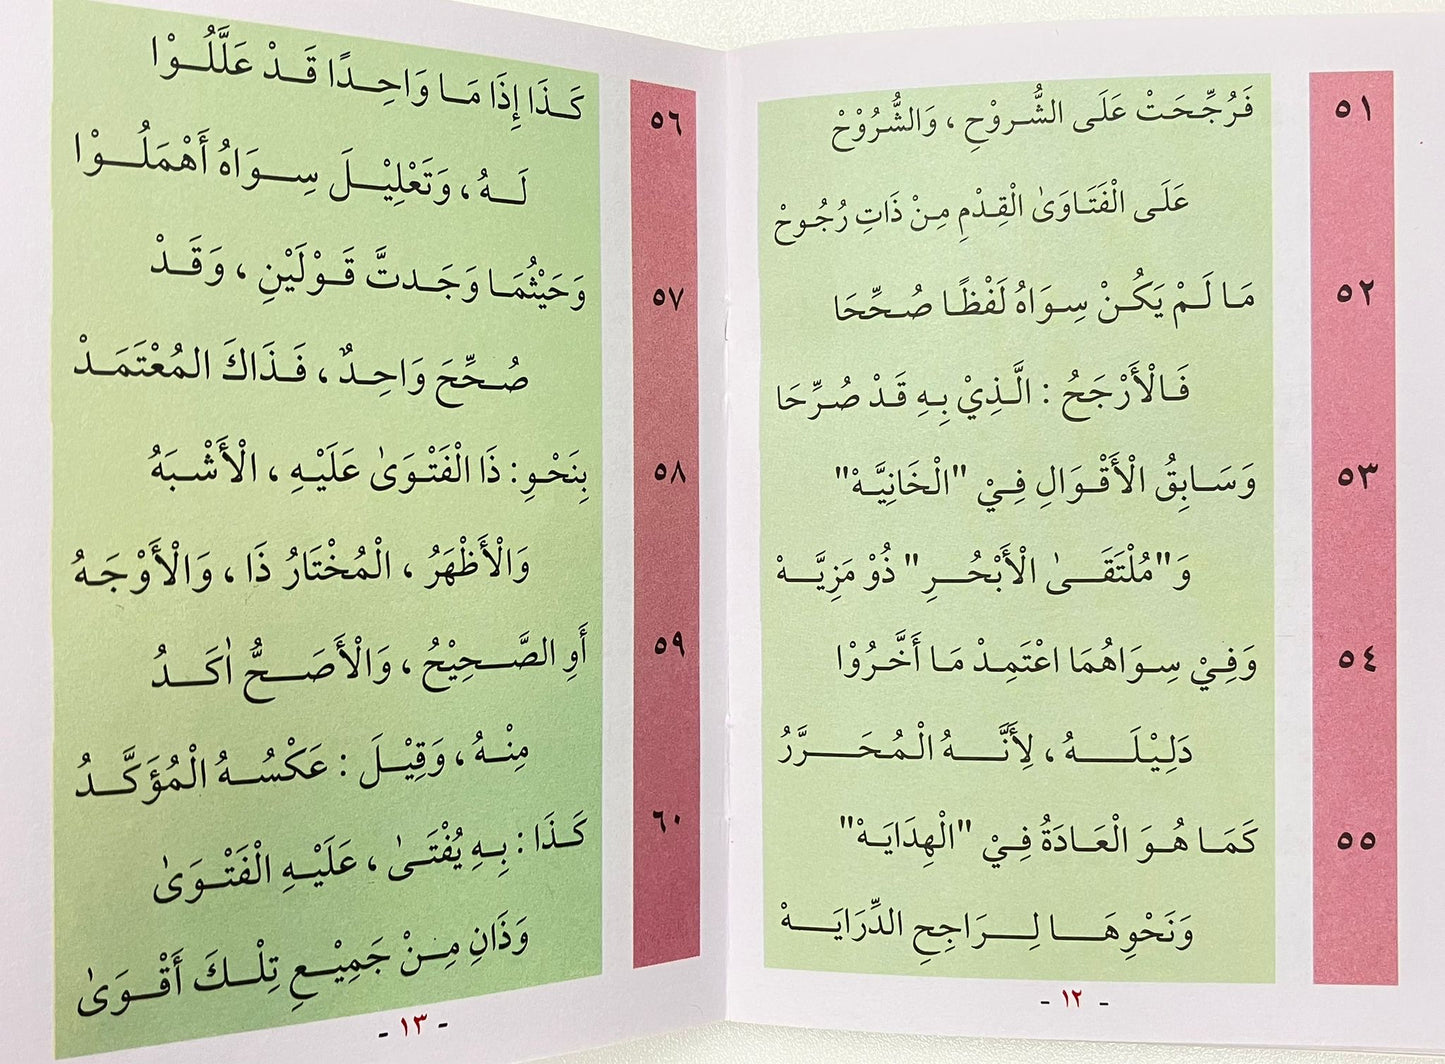 ٥١ فَرُجِّحَتْ عَلَى الشُّرُوْحِ ، وَالشُّرُوْحْ
عَلَى الْفَتَاوَىٰ الْقِدْمِ مِنْ ذَاتِ رُجُوحْ
٥٢ مَا لَمْ يَكُنْ سِوَاهُ لَفْظًا صُحِّحَا
فَالْأَرْجَحُ : الَّذِيْ بِهِ قَدْ صُرِّحَا
٥٣ وَسَابِقُ الْأَقْوَالِ فِيْ "الْخَانِيَّهْ"
وَ"مُلْتَقَىٰ الْأَبْحُرِ" ذُوْ مَزِيَّهْ
٥٤ وَفِيْ سِوَاهُمَا اعْتَمِدْ مَا أَخَّرُوْا
دَلِيْلَهُ ، لِأَنَّهُ الْمُحَرَّرُ
٥٥ كَمَا هُوَ الْعَادَةُ فِيْ "الْهِدَايَهْ"
وَنَحْوِهَا لِرَاجِحِ الدِّرَايَهْ
- ١٢ -
٥٦ كَذَا إِذَا مَا وَاحِدًا قَدْ عَلَّلُوْا
لَهُ ، وَتَعْلِيْلَ سِوَاهُ أَهْمَلُوْا
٥٧ وَحَيْثُمَا وَجَدتَّ قَوْلَيْنِ ، وَقَدْ
صُحِّحَ وَاحِدٌ ، فَذَاكَ المُعْتَمَدْ
٥٨ بِنَحْوِ : ذَا الْفَتْوَىٰ عَلَيْهِ ، الْأَشْبَهُ
وَالْأَظْهَرُ ، الْمُخْتَارُ ذَا ، وَالْأَوْجَهُ
٥٩ أَوِ الصَّحِيْحُ ، وَالْأَصَحُّ اٰكَدُ
مِنْهُ ، وَقِيْلَ : عَكْسُهُ الْمُؤَكَّدُ
٦٠ كَذَا : بِهِ يُفْتَىٰ ، عَلَيْهِ الْفَتْوَىٰ
وَذَانِ مِنْ جَمِيْعِ تِلْكَ أَقْوَىٰ
- ١٣ -